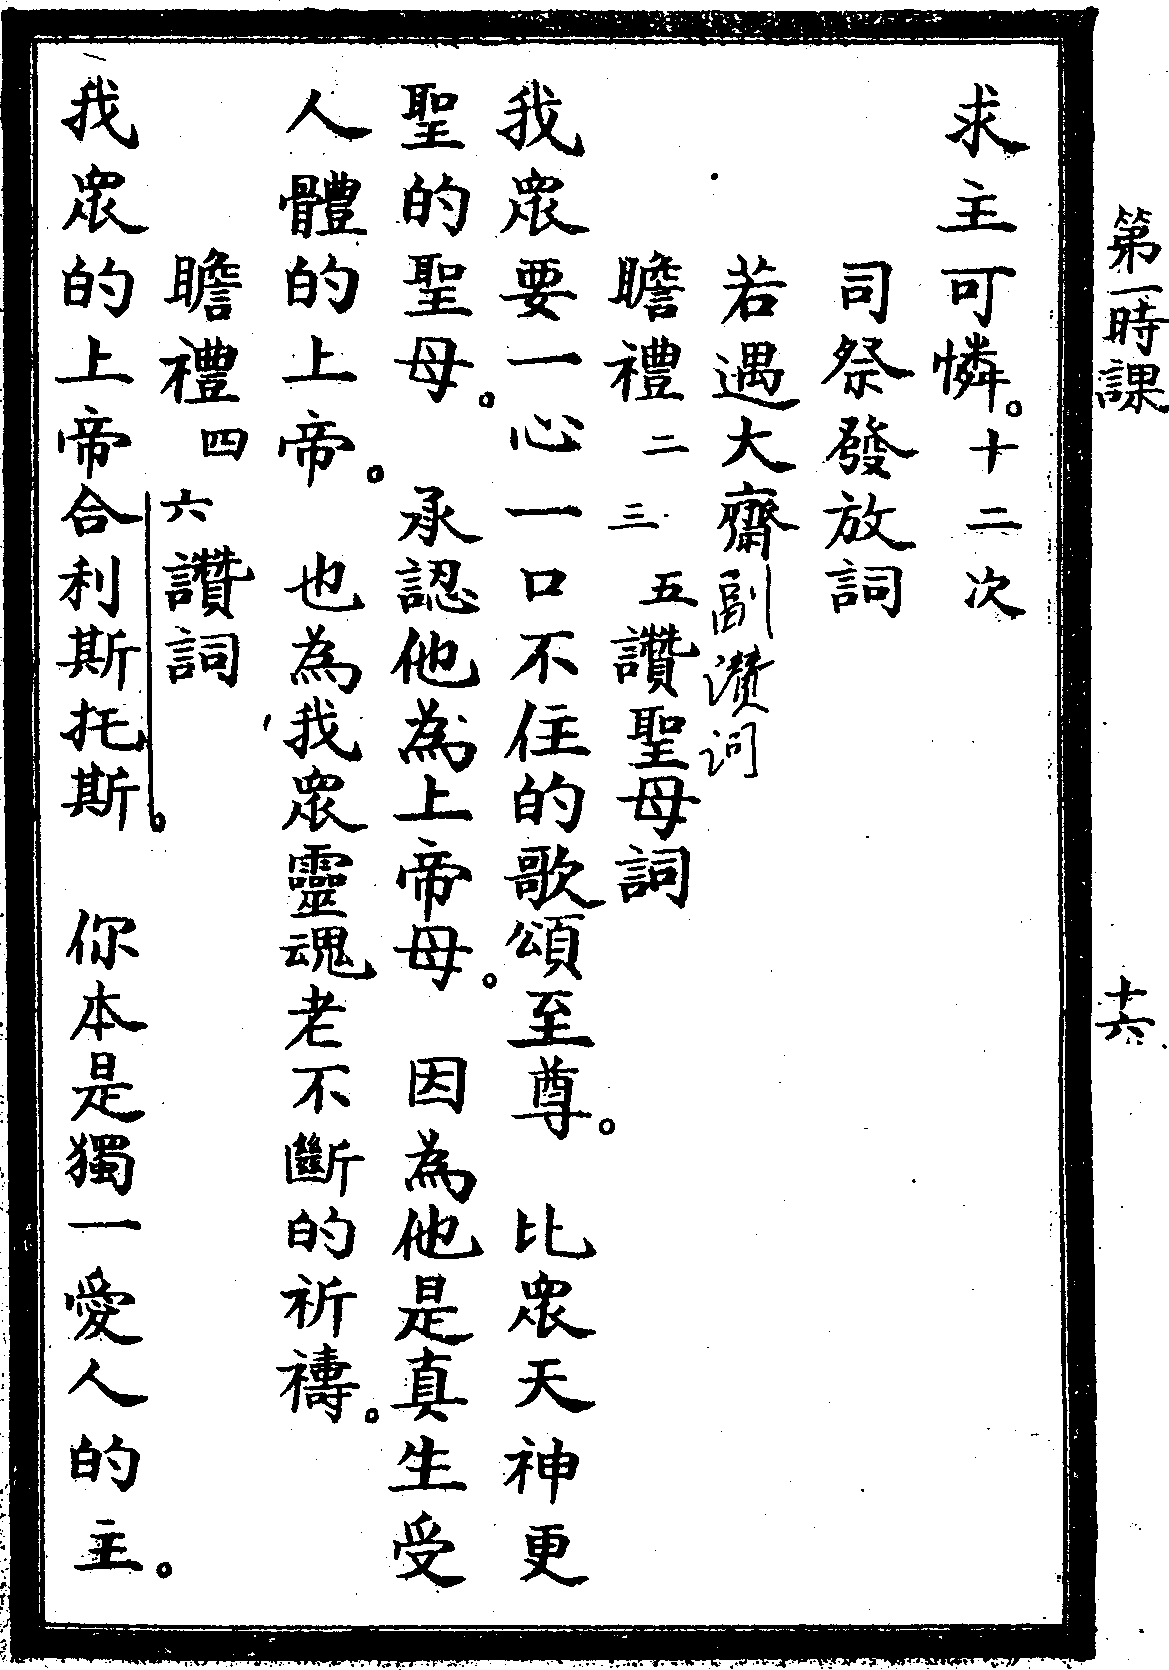 第一時課
十六
求主可憐。十二次
司祭發放詞
若遇大齋副讚词
瞻禮二三五讚聖母詞
我眾要一心一口不住的歌頌至尊。 比眾天神更
聖的聖母。 承認他為上帝母。 因為他是真生受
人體的上帝。 也為我眾靈魂老不斷的祈禱。
瞻禮四六讚詞
我眾的上帝合利斯托斯。 你本是獨一愛人的主。